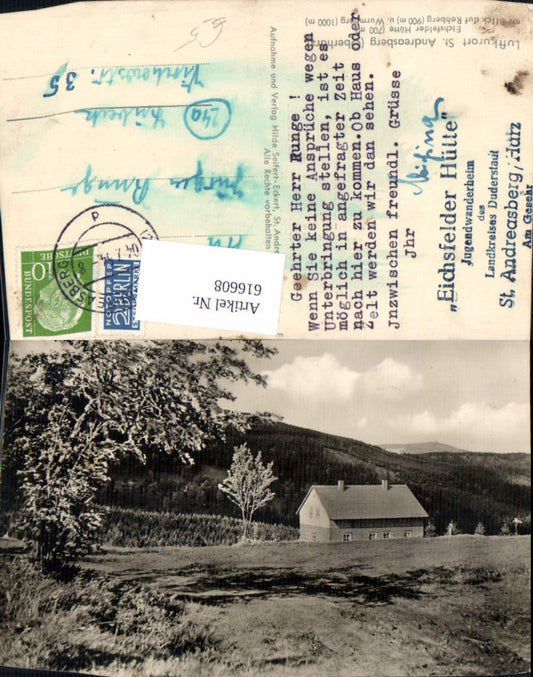 Luftkurort St. Andreasberg (Oberharz)
Eichsfelder Hütte (700 m)
mit Blick auf Rehberg (900 m) u. Wurmberg (1000 m)
Geehrter Herr Runge !
Wenn Sie keine Ansprüche wegen
Unterbringung stellen, ist es
möglich in angefragter Zeit
nach hier zu kommen. Ob Haus oder
Zelt werden wir dan sehen.
Jnzwischen freundl. Grüsse
Jhr
„Eichsfelder Hütte"
Jugendwanderheim
des
Landkreises Duderstadt
St. Andreasberg/Harz
Am Gesehr
Aufnahme und Verlag Hilde Seifert-Eckert, St. Andre
Alle Rechte vorbehalten
Jürgen Runge
(24a) Lübeck
35
DEUTSCHE
BUNDESPOST
10
NOTOPFER
2 BERLIN
STEUERMARKE
Artikel Nr.
616608